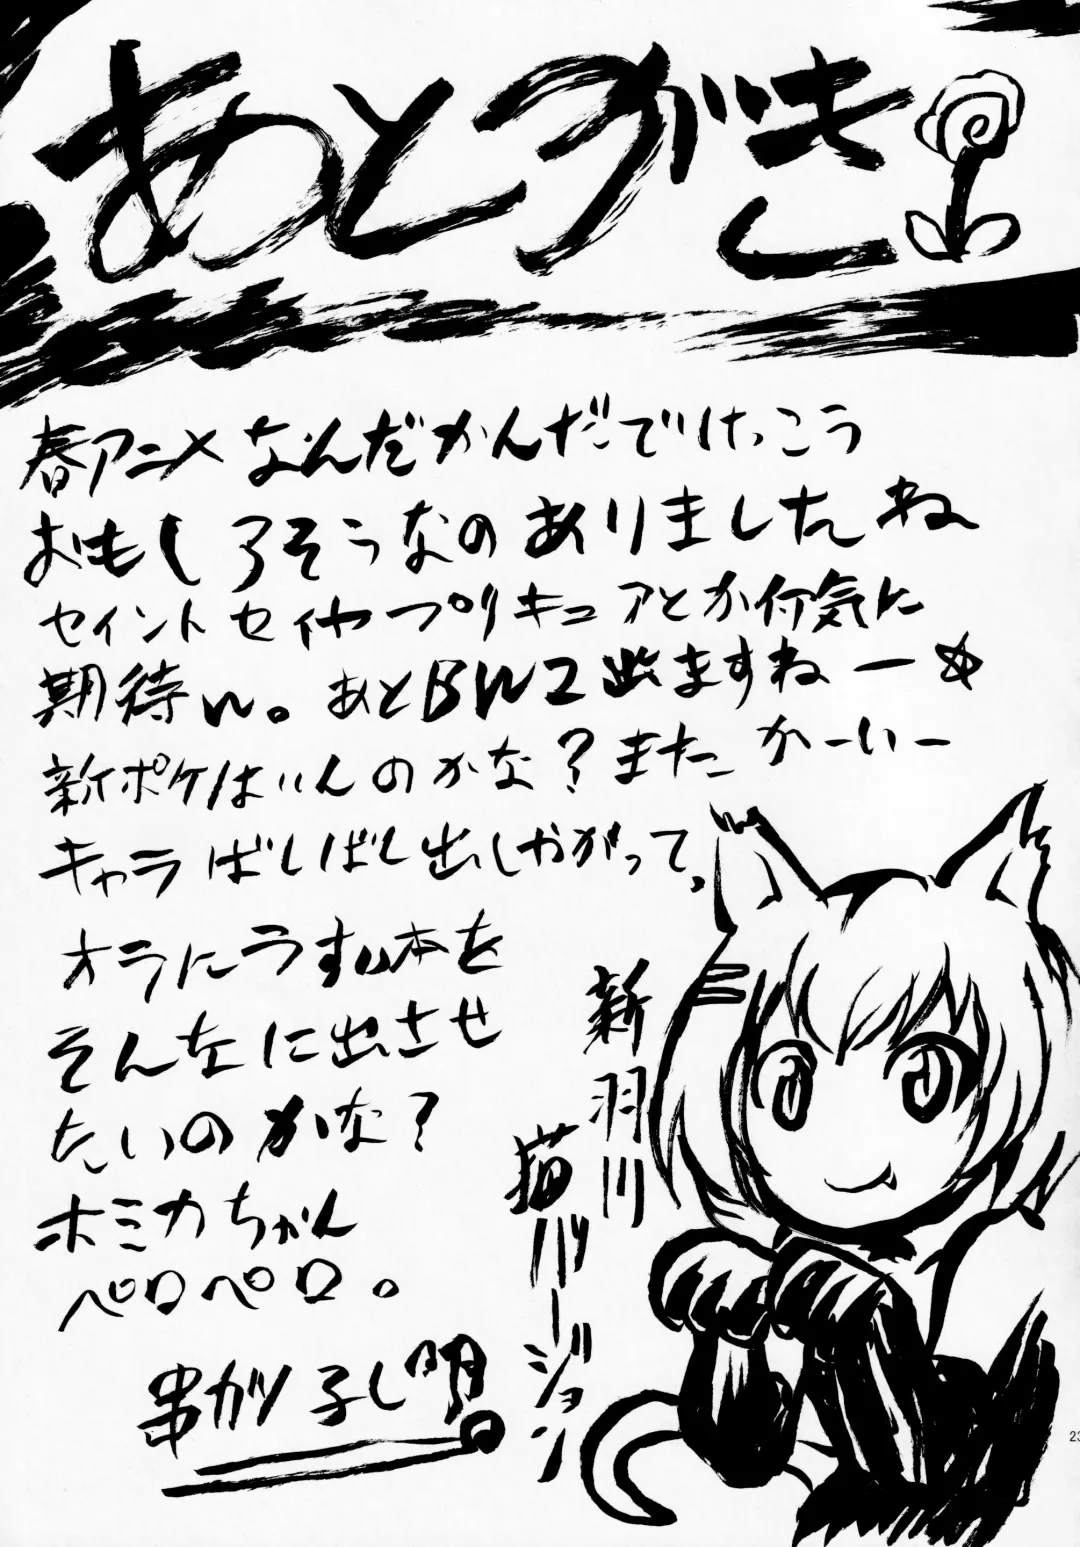 あとがき
春アニメなんだかんだでけっこう
おもしろそうなのありましたね
セイントセイヤプリキュアとか何気に
期待w。あとBW2出ますねー☆
新ポケはいんのかな?またかーいー
キャラばしばし出しやがって、
オラにうすい本を
そんなに出させ
たいのかな?
ホミカちゃん
ペロペロ。
串カツ子し明
新羽川
猫バージョン
23